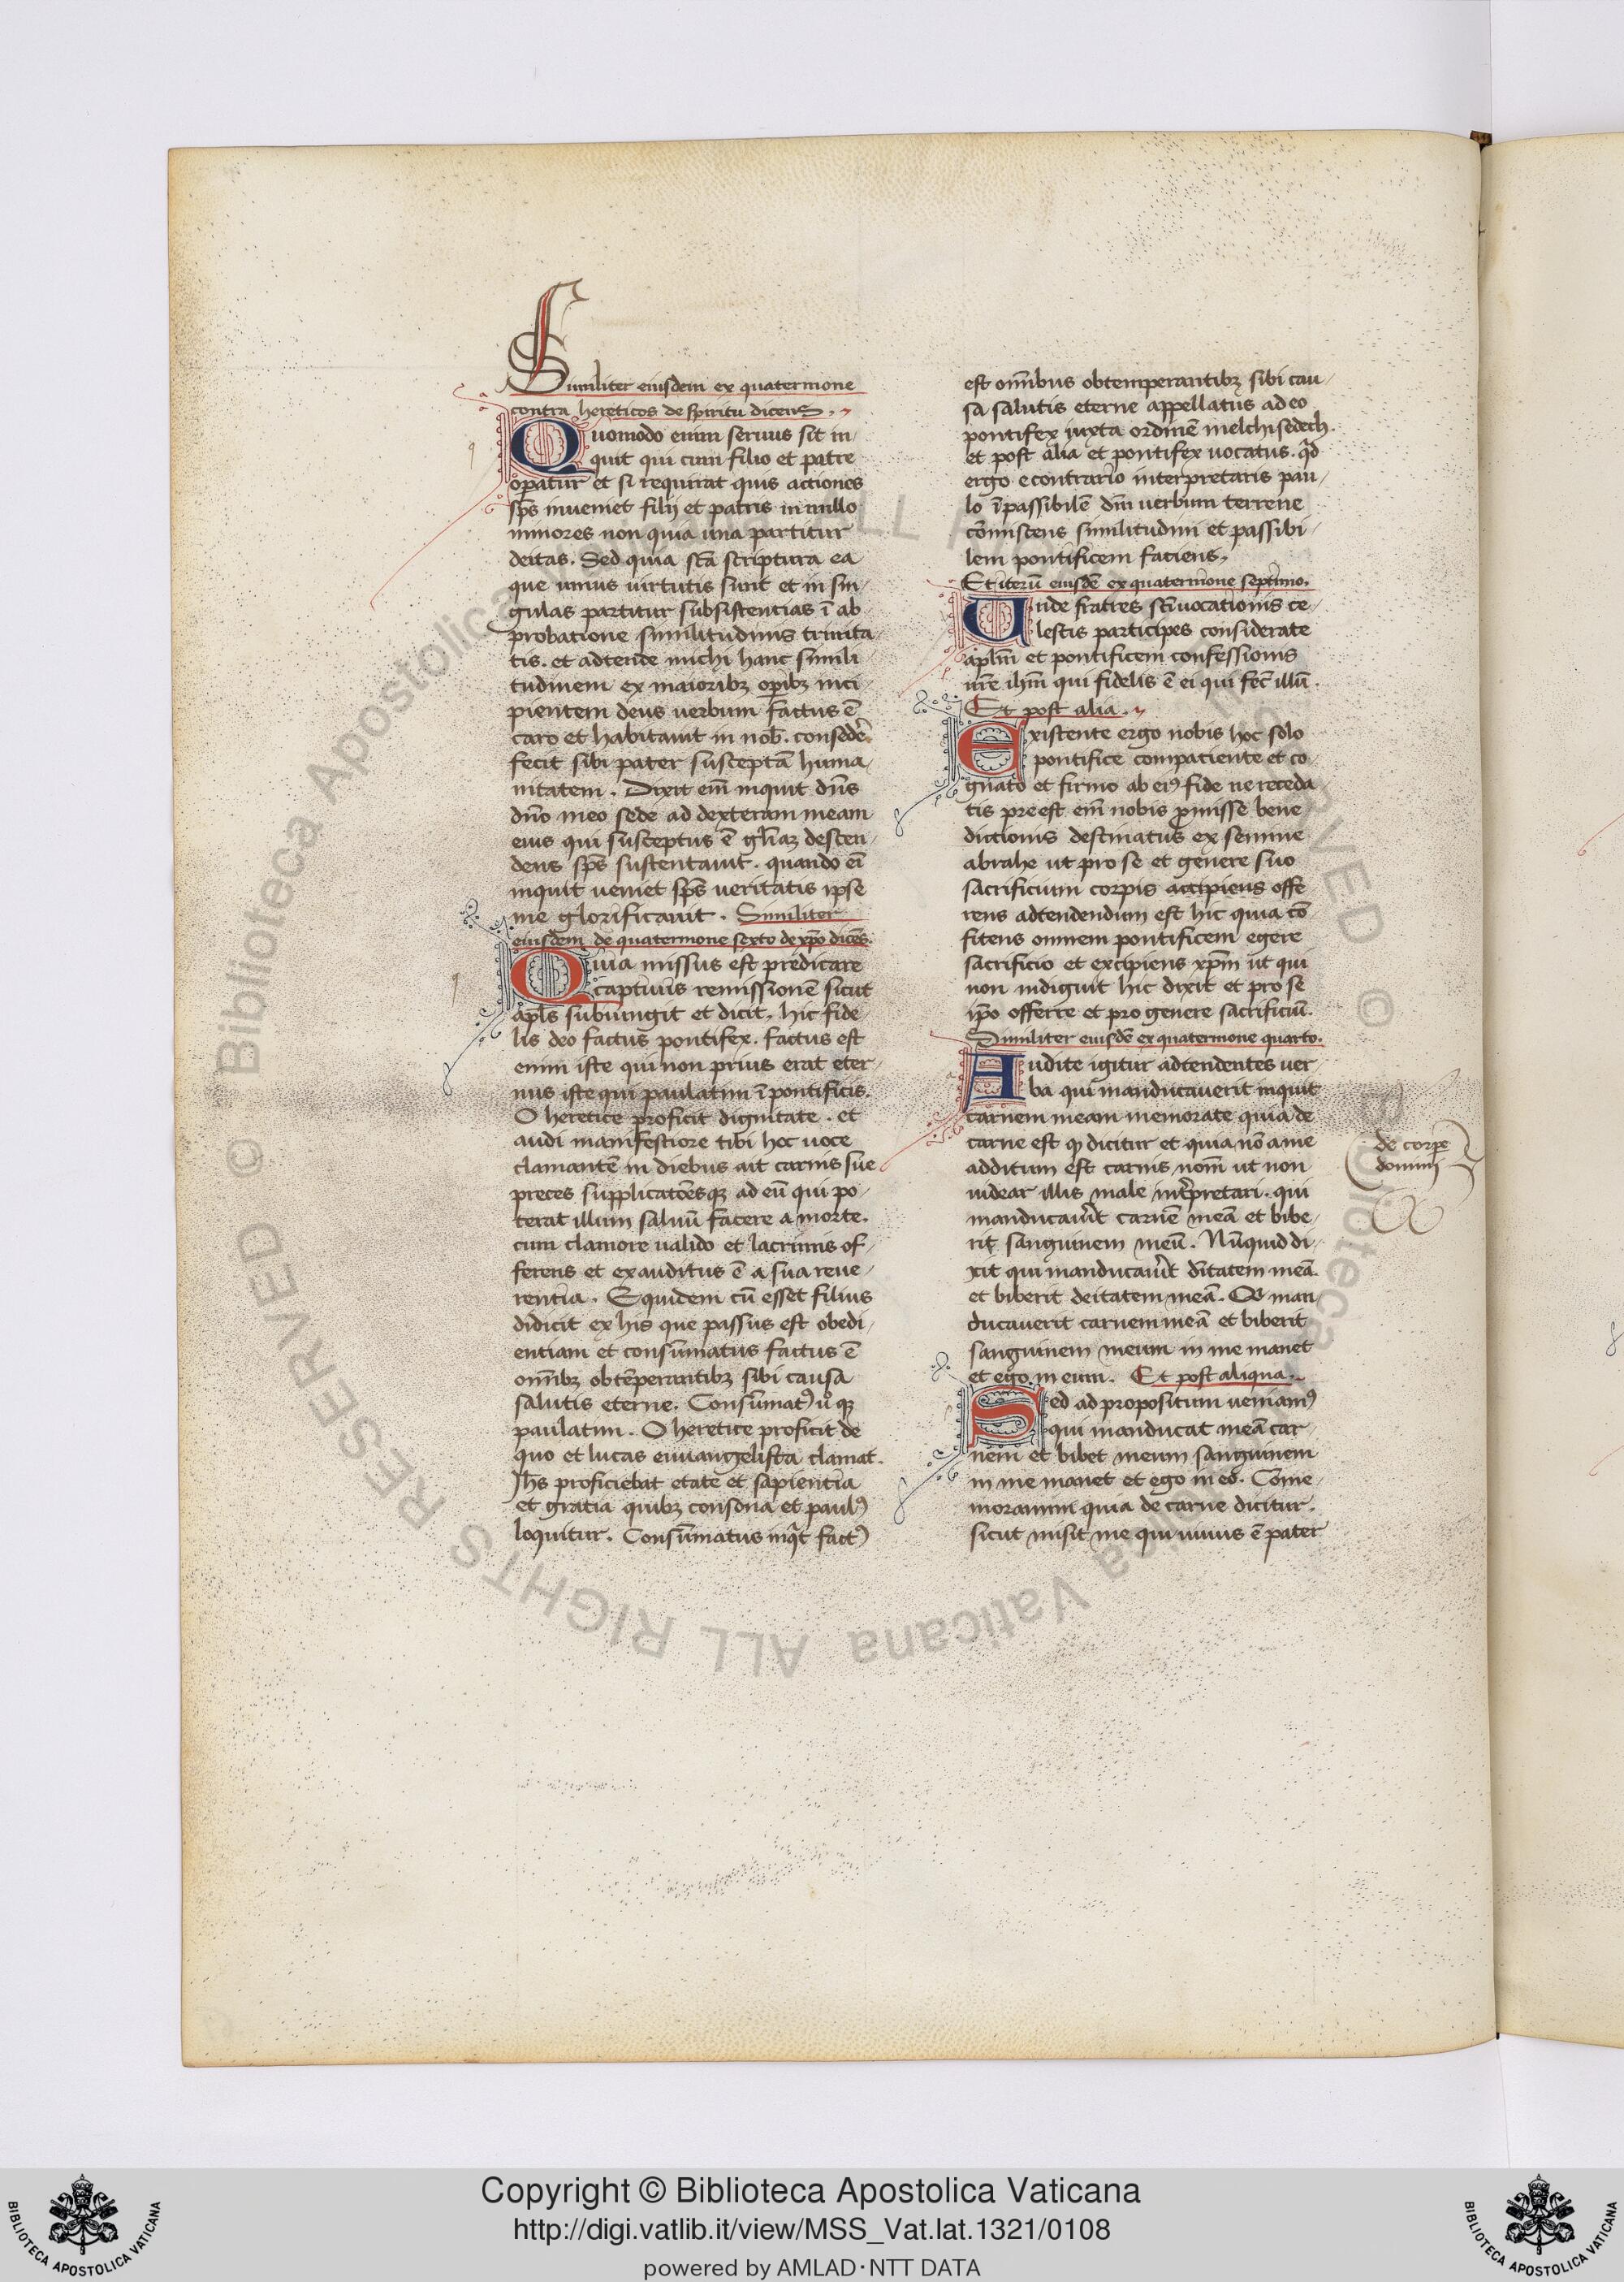 Similiter eiusdem ex quaternione
contra hereticos de spiritu dicens.
Quomodo enim seruus sit in
quit qui cum filio et patre
operatur et si requirat quis actiones
sp̄s inueniet filij et patris in nullo
minores non quia una partitur
deitas. Sed quia sc̄a scriptura ea
que unius uirtutis sunt et in sin
gulas partitur subsistentias ī ab
probatione similitudinis trinita
tis. et adtende michi hanc simili
tudinem ex maioribꝫ opibꝫ inci
pientem deus uerbum factus ē
caro et habitauit in nob̄. consedere
fecit sibi pater susceptā huma
nitatem. Dixit em̄ inquit dn̄s
dn̄o meo sede ad dexteram meam
eius qui susceptus ē descen
dens sp̄s sustentauit. quando ei
inquit ueniet sp̄s ueritatis ipse
me glorificauit. Similiter
eiusdem de quaternione sexto de xp̄o dicēs.
Quia missus est predicare
captiuis remissionē sicut
apl̄s subiungit et dicit. hic fide
lis deo factus pontifex. factus est
enim iste qui non prius erat eter
nus iste qui paulatim ī pontificis.
O heretice proficit dignitate. et
audi manifestiore tibi hec uoce
clamantē in diebus ait carnis sue
preces supplicatōesqꝫ ad eū qui po
terat illum saluū facere a morte.
cum clamore ualido et lacrimis of
ferens et exauditus ē a sua reue
rentia. Equidem cū esset filius
didicit ex his que passus est obedi
entiam et consūmatus factus ē
om̄ibꝫ obtēperantibꝫ sibi causa
salutis eterne. Consūmatꝰ uͦ qꝫ
paulatim. O heretice proficit de
quo et lucas euuangelista clamat.
Jhs̄ proficiebat etate et sapientia
et gratia quibꝫ consona et paulꝰ
loquitur. Consūmatus inqͥt factꝰ
est om̄ibus obtemperantibꝫ sibi cau
sa salutis eterne appellatus ad eo
pontifex iuxta ordinē melchisedech.
et post alia et pontifex uocatus. qͥd
ergo econtrario interpretaris pau
lo īpassibilē dm̄ uerbum terrene
cōmiscens similitudini et passibi
lem pontificem faciens.
Et iterū eiusdē ex quaternione septimo.
Unde fratres sc̄i uocationis ce
lestis participes considerate
apl̄m et pontificem confessionis
nr̄e ihm̄ qui fidelis ē ei qui fec̄ illū.
Et post alia.
Existente ergo nobis hoc solo
pontifice compaciente et co
gnato et firmo ab eiꝰ fide ne receda
tis preest em̄ nobis pmisse bene
dictionis destinatus ex semine
abrahe ut pro se et genere suo
sacrificium corpis accipiens offe
rens adtendendum est hic quia cō
fitens omnem pontificem egere
sacrificio et excipiens xp̄m ut qui
non indiguit hic dixit et pro se
ip̄o offerre et pro genere sacrificiū.
Similiter eiusdē ex quaternione quarto.
Audite igitur adtendentes uer
ba qui manducauerit inquit
carnem meam memorate quia de
carne est qꝫ dicitur et quia nō a me
additum est carnis nom̄ ut non
uidear illis male int̄pretari. qui
manducau̅it carnē meā et bibe
rit sanguinem meū. Nūquid di
xit qui manducau̅it diītatem meā.
et biberit deitatem meā. Qui man
ducauerit carnem meā et biberit
sanguinem meum in me manet
et ego in eum. Et post aliqua.
Sed ad propositum ueniamꝰ
qui manducat meā car
nem et bibet meum sanguinem
in me manet et ego in eō. Come
moramini quia de carne dicitur.
sicut misit me qui uiuus ē pater
de corpe
domini
Copyright © Biblioteca Apostolica Vaticana
http://digi.vatlib.it/view/MSS_Vat.lat.1321/0108
powered by AMLAD·NTT DATA
BIBLIOTECA APOSTOLICA VATICANA
BIBLIOTECA APOSTOLICA VATICANA